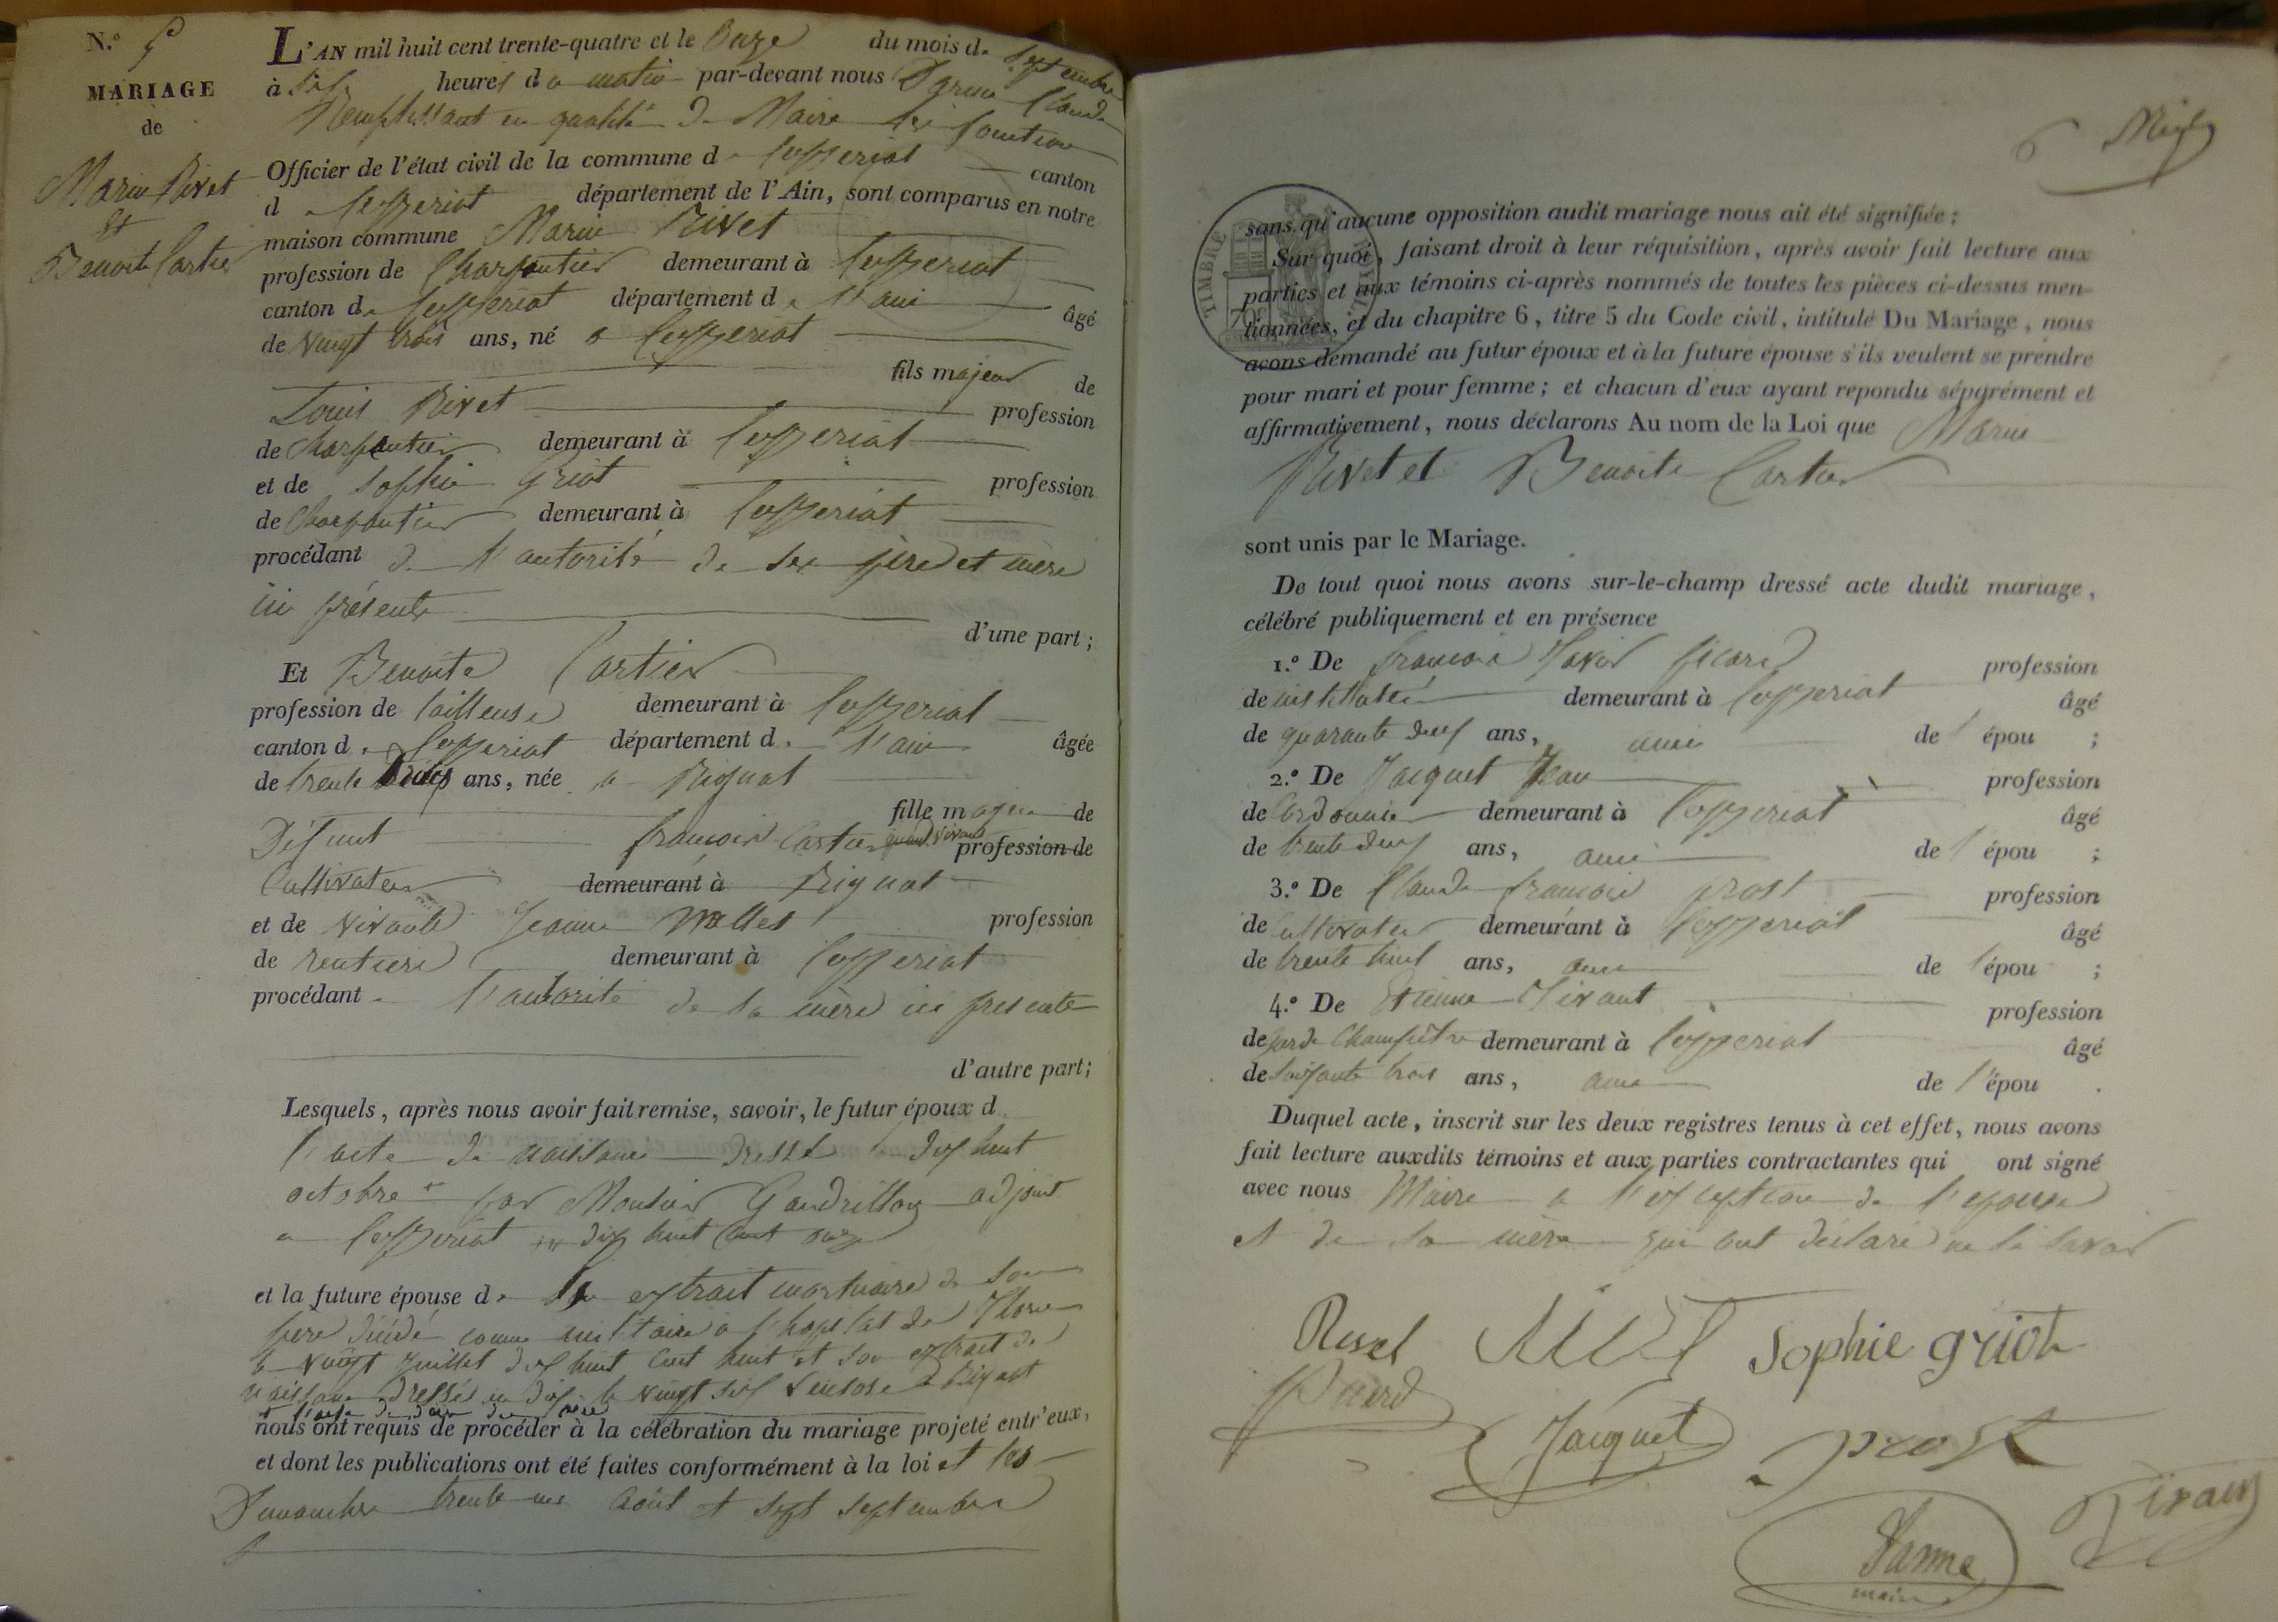 N.o 5
MARIAGE
de
Marie Rivet
Et
Benoite Cartier
L'AN mil huit cent trente-quatre et le Onze du mois de septembre
à heures du matin par-devant nous Claude
Remplissant en qualité de Maire les fonction
Officier de l'état civil de la commune de Ceyzeriat canton
de Ceyzeriat département de l'Ain, sont comparus en notre
maison commune Marie Rivet
profession de Charpentier demeurant à Ceyzeriat
canton de Ceyzeriat département de l'ain âgé
de vingt trois ans, né a Ceyzeriat
fils majeur de
Louis Rivet profession
de Charpentier demeurant à Ceyzeriat
et de Sophie Griot profession
de Charpentier demeurant à Ceyzeriat
procédant de l'autorité de ses père et mère
ici présents
d'une part;
Et Benoite Cartier
profession de tailleuse demeurant à Ceyzeriat
canton de Ceyzeriat département de l'ain âgée
de trente ans, née a Rignat
fille majeure de
Défunt francois Cartier quand vivant profession de
Cultivateur demeurant à Rignat
et de vivante Jeanne profession
de rentiere demeurant à Ceyzeriat
procédant de l'autorité de sa mère ici presente
d'autre part;
Lesquels, après nous avoir fait remise, savoir, le futur époux de
l'acte de naissance dressé le dix huit
octobre par Monsieur Gaudrillon adjoint
a Ceyzeriat dix huit cent onze
et la future épouse de extrait mortuaire de son
père décédé comme militaire a l'hopital de
le vingt juillet dix huit cent huit et son extrait de
naissance dressés le vingt six a Rignat
nous ont requis de procéder à la célébration du mariage projeté entr'eux,
et dont les publications ont été faites conformément à la loi et les
Dimanches trente un août et sept septembre
6
TIMBRE
70c
sans qu'aucune opposition audit mariage nous ait été signifiée;
Sur quoi, faisant droit à leur réquisition, après avoir fait lecture aux
parties et aux témoins ci-après nommés de toutes les pièces ci-dessus men-
tionnées, et du chapitre 6, titre 5 du Code civil, intitulé Du Mariage, nous
avons demandé au futur époux et à la future épouse s'ils veulent se prendre
pour mari et pour femme; et chacun d'eux ayant repondu séparément et
affirmativement, nous déclarons Au nom de la Loi que Marie
Rivet et Benoite Cartier
sont unis par le Mariage.
De tout quoi nous avons sur-le-champ dressé acte dudit mariage,
célébré publiquement et en présence
1.o De francois Xavier profession
de demeurant à Ceyzeriat âgé
de quarante deux ans, ami de l'épou ;
2.o De Jacquet Jean profession
de Cordonnier demeurant à Ceyzeriat âgé
de trente deux ans, ami de l'épou ;
3.o De Claude francois prost profession
de cultivateur demeurant à Ceyzeriat âgé
de trente huit ans, ami de l'épou ;
4.o De Etienne profession
de garde Champêtre demeurant à Ceyzeriat âgé
de soixante trois ans, ami de l'épou .
Duquel acte, inscrit sur les deux registres tenus à cet effet, nous avons
fait lecture auxdits témoins et aux parties contractantes qui ont signé
avec nous Maire a l'exception de l'epouse
et de sa mère qui ont déclaré ne le savoir
Rivet Rivet Sophie griot
Jacquet prost
maire